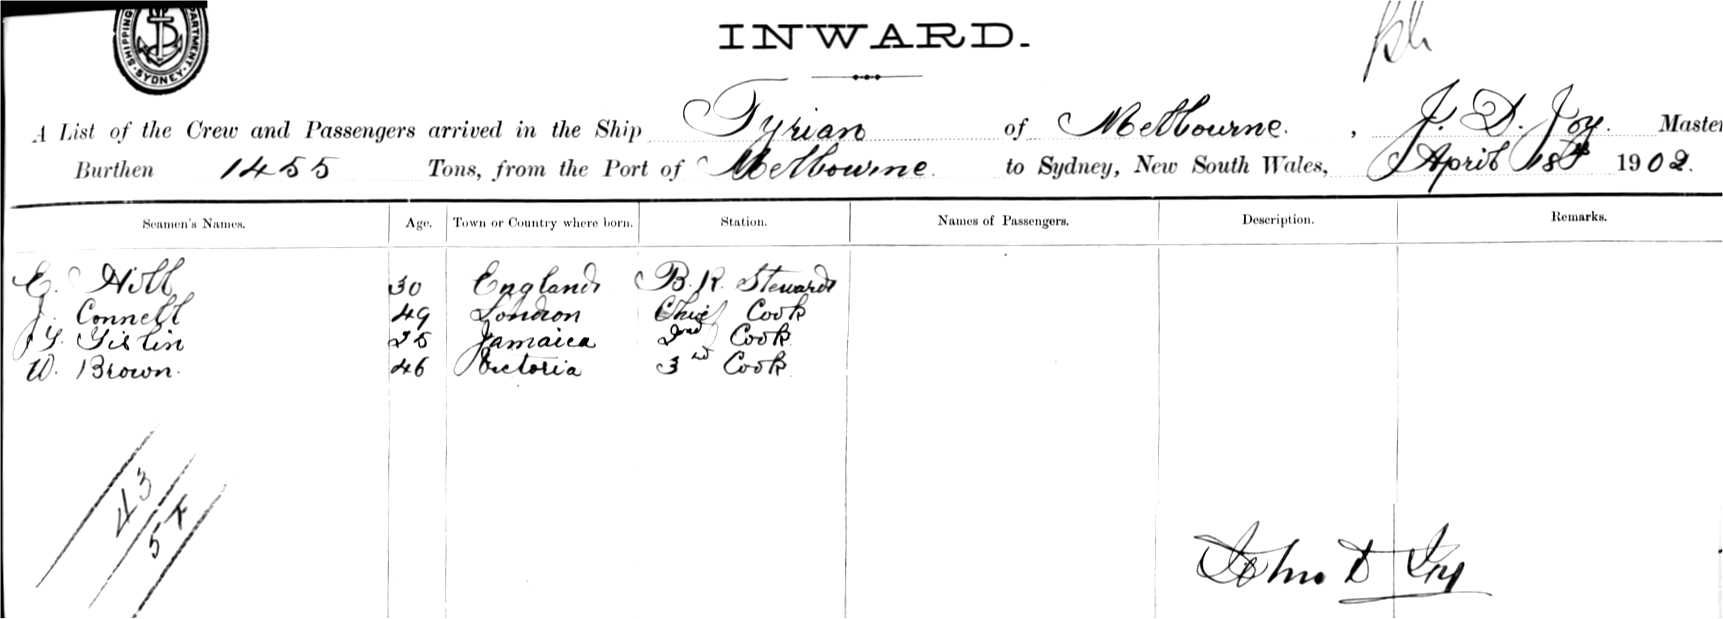 SHIPPING DEPARTMENT · SYDNEY ·
INWARD.
A List of the Crew and Passengers arrived in the Ship Tyrian of Melbourne, J. D. Joy. Master
Burthen 1455 Tons, from the Port of Melbourne. to Sydney, New South Wales, April 18th 1902.
Seamen's Names. Age. Town or Country where born. Station. Names of Passengers. Description. Remarks.
E. Hill 30 England B. R. Steward
J. Connell 49 London Chief Cook
J. G. 25 Jamaica 2nd Cook
W. Brown. 46 Victoria 3rd Cook
43
54
John D Joy